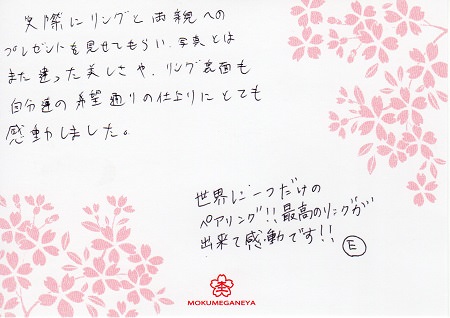 実際にリングと両親への
プレゼントを見せてもらい、写真とは
また違った美しさや、リング表面も
自分達の希望通りの仕上りにとても
感動しました。
世界に一つだけの
ペアリング!!最高のリングが
出来て感動です!! E
MOKUMEGANEYA